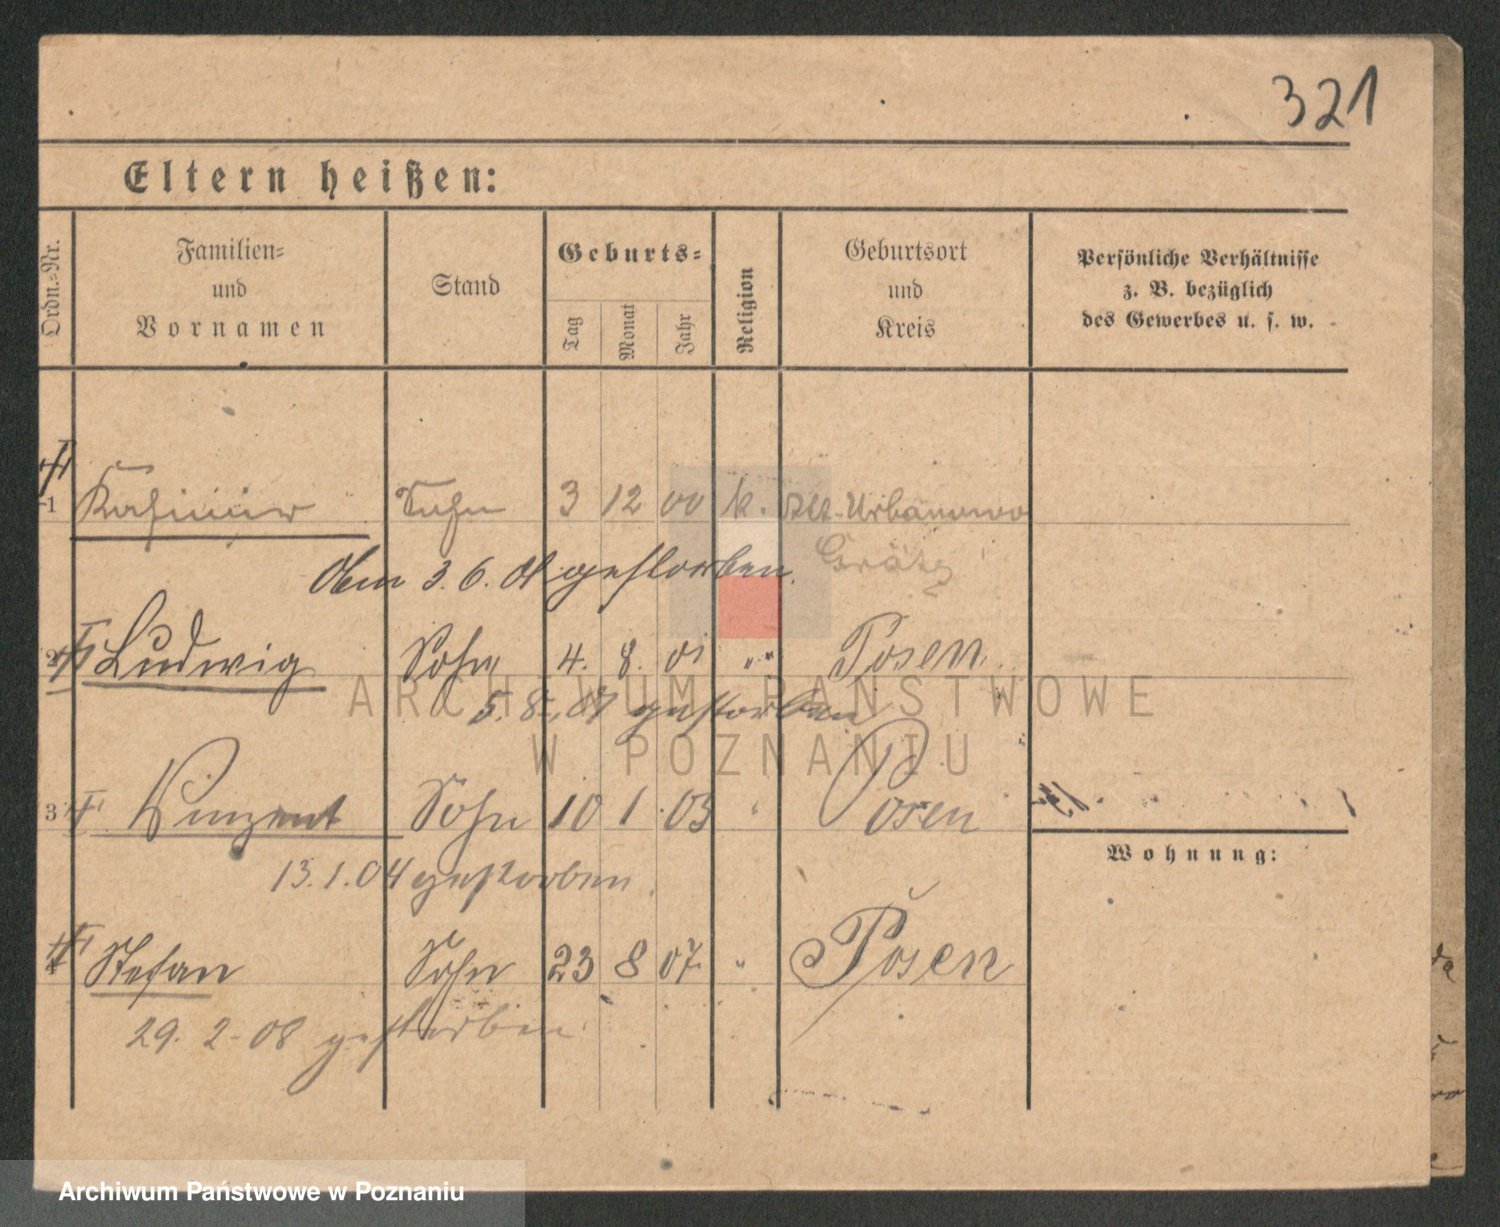 321
Eltern heißen:
Ordn.-Nr.
Familien-
und
Vornamen
Stand
Geburts-
Tag
Monat
Jahr
Religion
Geburtsort
und
Kreis
Persönliche Verhältnisse
z. B. bezüglich
des Gewerbes u. s. w.
1 Kasimir Sohn 3 12 00 k. Urbanowo
Grätz
3. 6. 01 gestorben.
2 Ludwig Sohn 4. 8. 01 " Posen
5. 8. 01 gestorben
3 Vinzent Sohn 10 1 03 " Posen
13. 1. 04 gestorben
4 Stefan Sohn 23 8 07 " Posen
29. 2. 08 gestorben
Wohnung:
ARCHIWUM PAŃSTWOWE
W POZNANIU
Archiwum Państwowe w Poznaniu